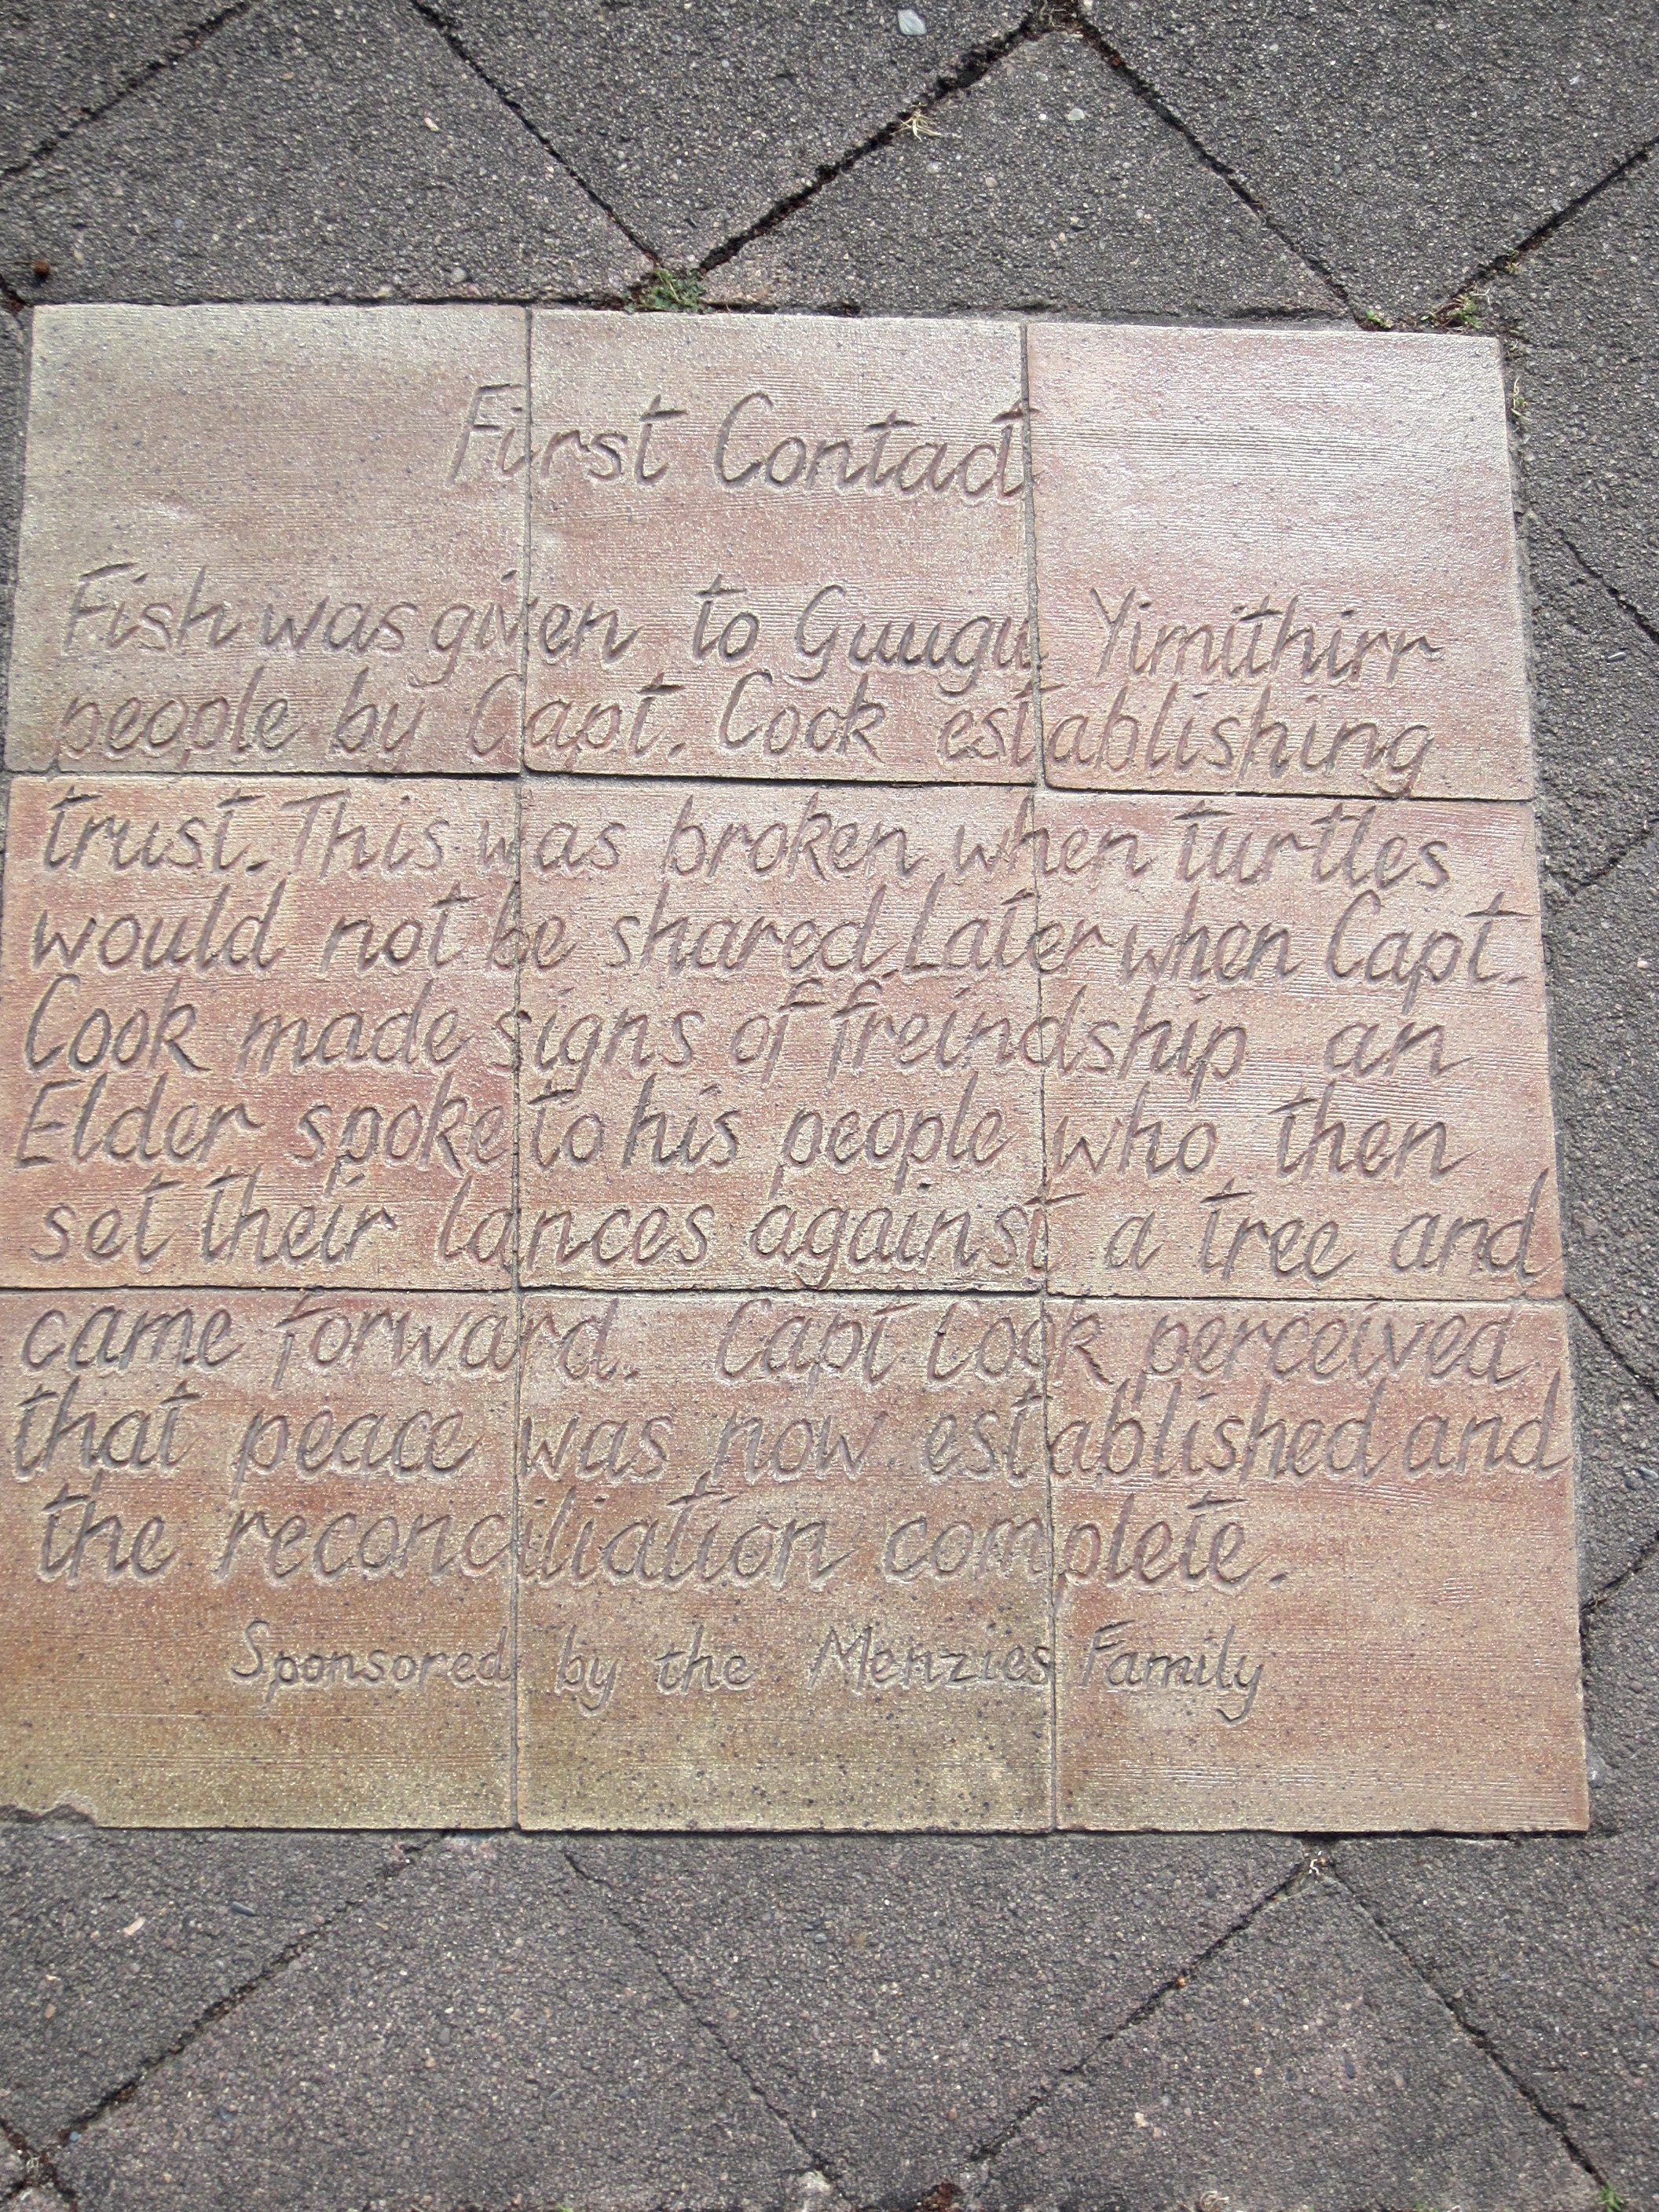 First Contact
Fish was given to Guugu Yimithirr
people by Capt. Cook establishing
trust. This was broken when turtles
would not be shared. Later when Capt.
Cook made signs of freindship an
Elder spoke to his people who then
set their lances against a tree and
came forward. Capt Cook perceived
that peace was now established and
the reconciliation complete.
Sponsored by the Menzies Family